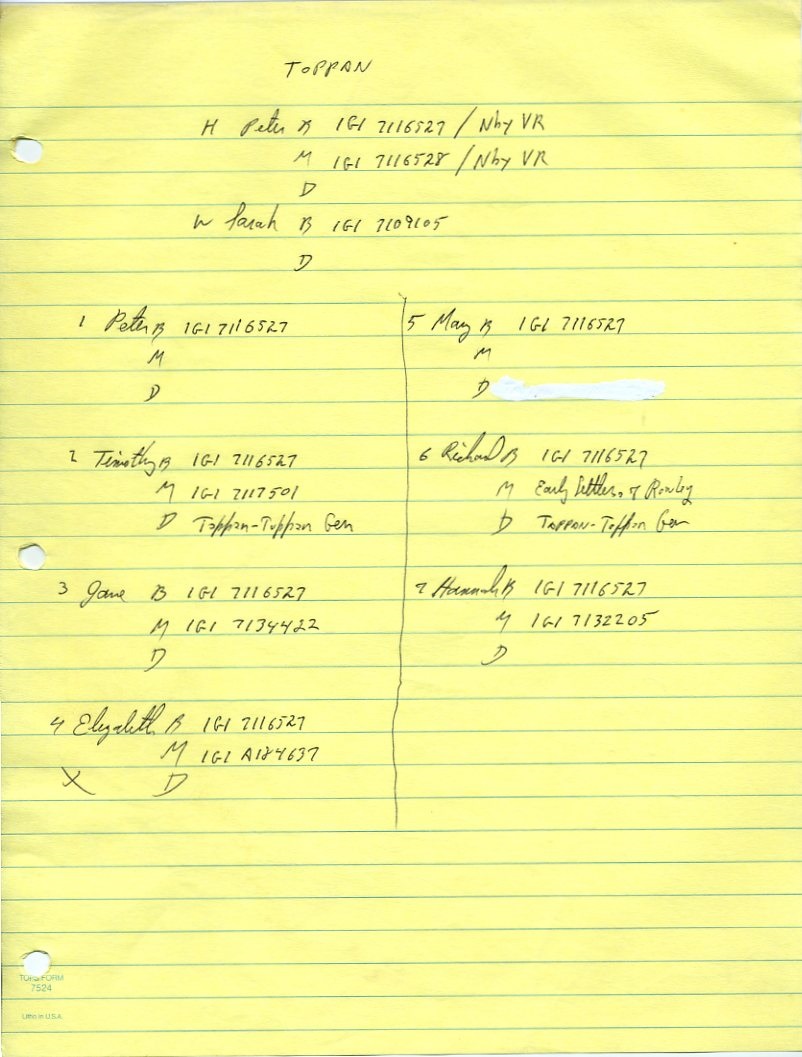 TOPPAN
H Peter B IGI 7116527 / Nby VR
M IGI 7116528 / Nby VR
D
W Sarah B IGI 7109105
D
1 Peter B IGI 7116527
M
D
2 Timothy B IGI 7116527
M IGI 7117501
D Tappan-Toppan Gen
3 Jane B IGI 7116527
M IGI 7134422
D
4 Elizabeth B IGI 7116527
M IGI A184637
X D
5 Mary B IGI 7116527
M
D
6 Richard B IGI 7116527
M Early Settlers of Rowley
D TAPPAN-Toppan Gen
7 Hannah B IGI 7116527
M IGI 7132205
D
TOPS FORM
7524
Litho in U.S.A.